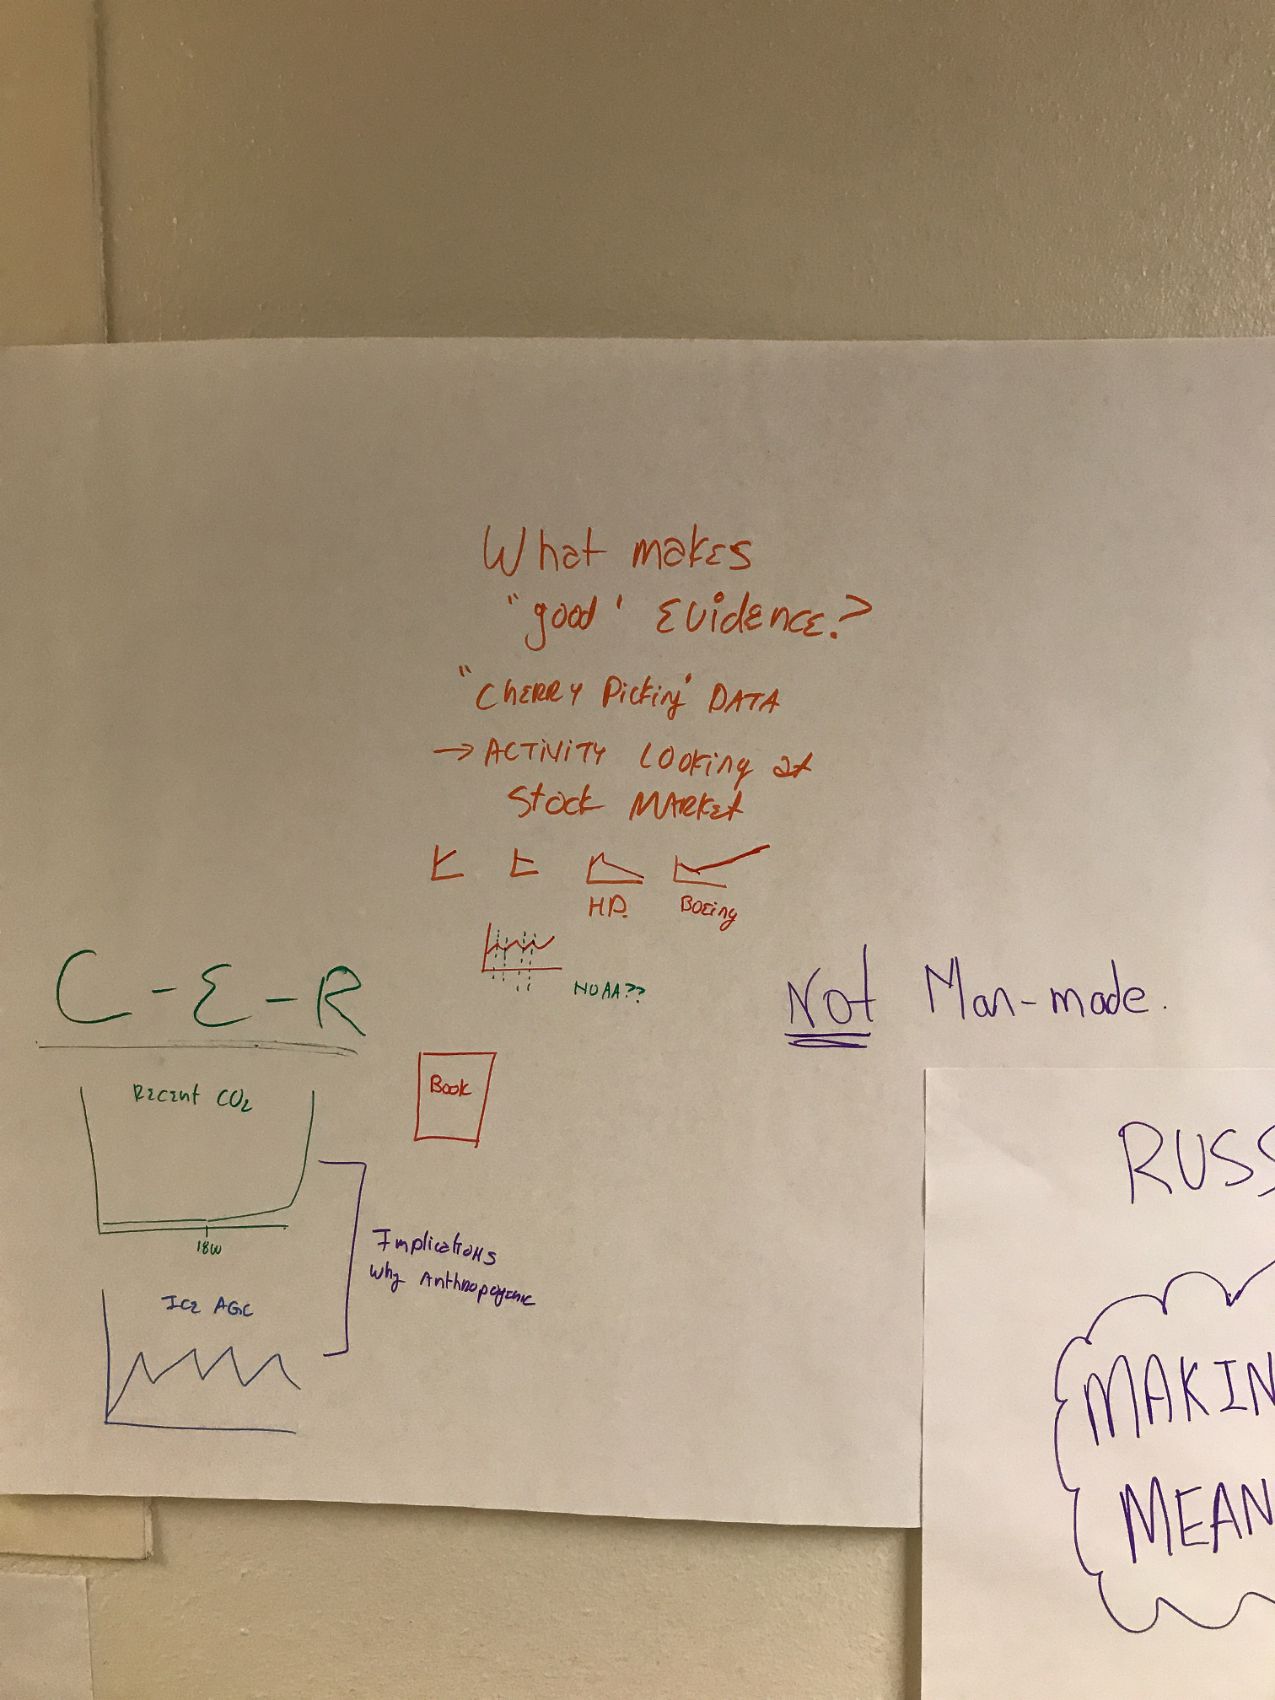 What makes
"good" Evidence?
"Cherry Picking" DATA
→ ACTIVITY Looking at
Stock MARKET
HP.
Boeing
NOAA??
C-E-R
Not Man-made.
Recent CO2
Book
1800
Implications
Why Anthropogenic
Ice AGE
RUSS
MAKIN
MEAN